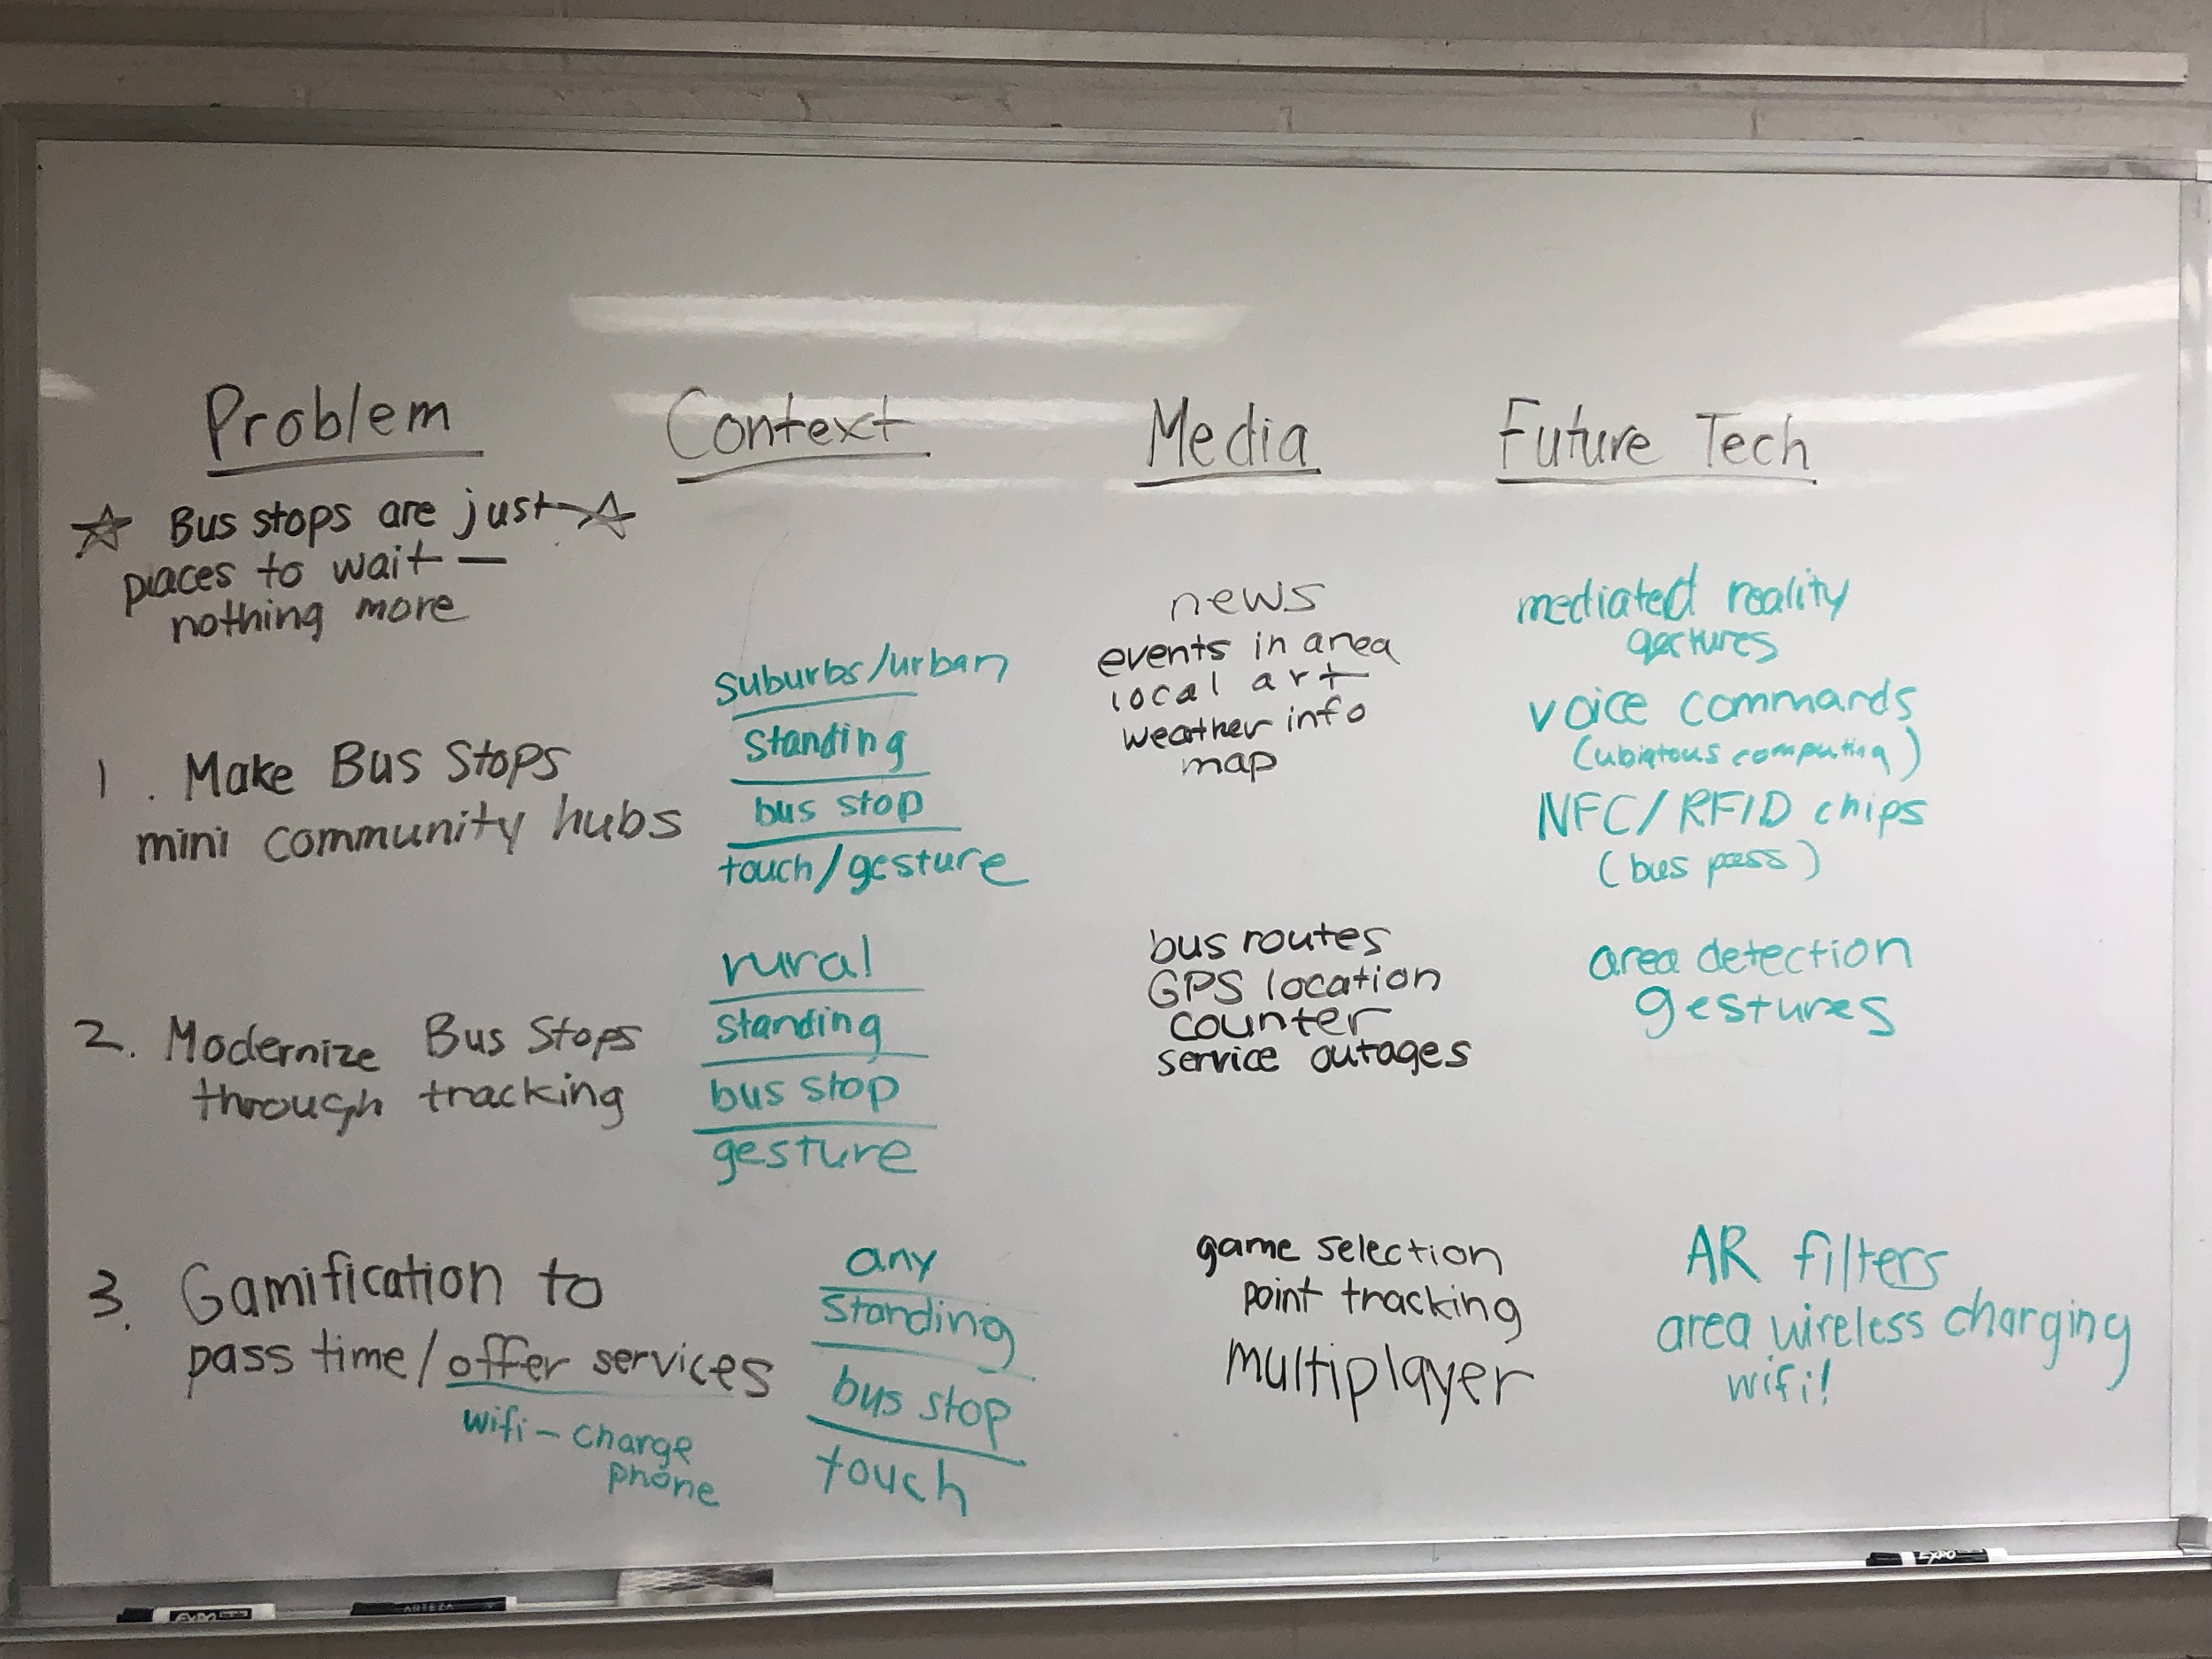 Problem
Context
Media
Future Tech
☆ Bus stops are just ☆
places to wait —
nothing more
1. Make Bus Stops
mini community hubs
suburbs/urban
standing
bus stop
touch/gesture
news
events in area
local art
weather info
map
mediated reality
gectures
voice commands
(ubiqtous computing)
NFC/RFID chips
(bus pass)
2. Modernize Bus Stops
through tracking
rural
standing
bus stop
gesture
bus routes
GPS location
counter
service outages
area detection
gestures
3. Gamification to
pass time/offer services
wifi - charge
phone
any
standing
bus stop
touch
game selection
point tracking
multiplayer
AR filters
area wireless charging
wifi!
EXPO
ARTEZA
EXPO